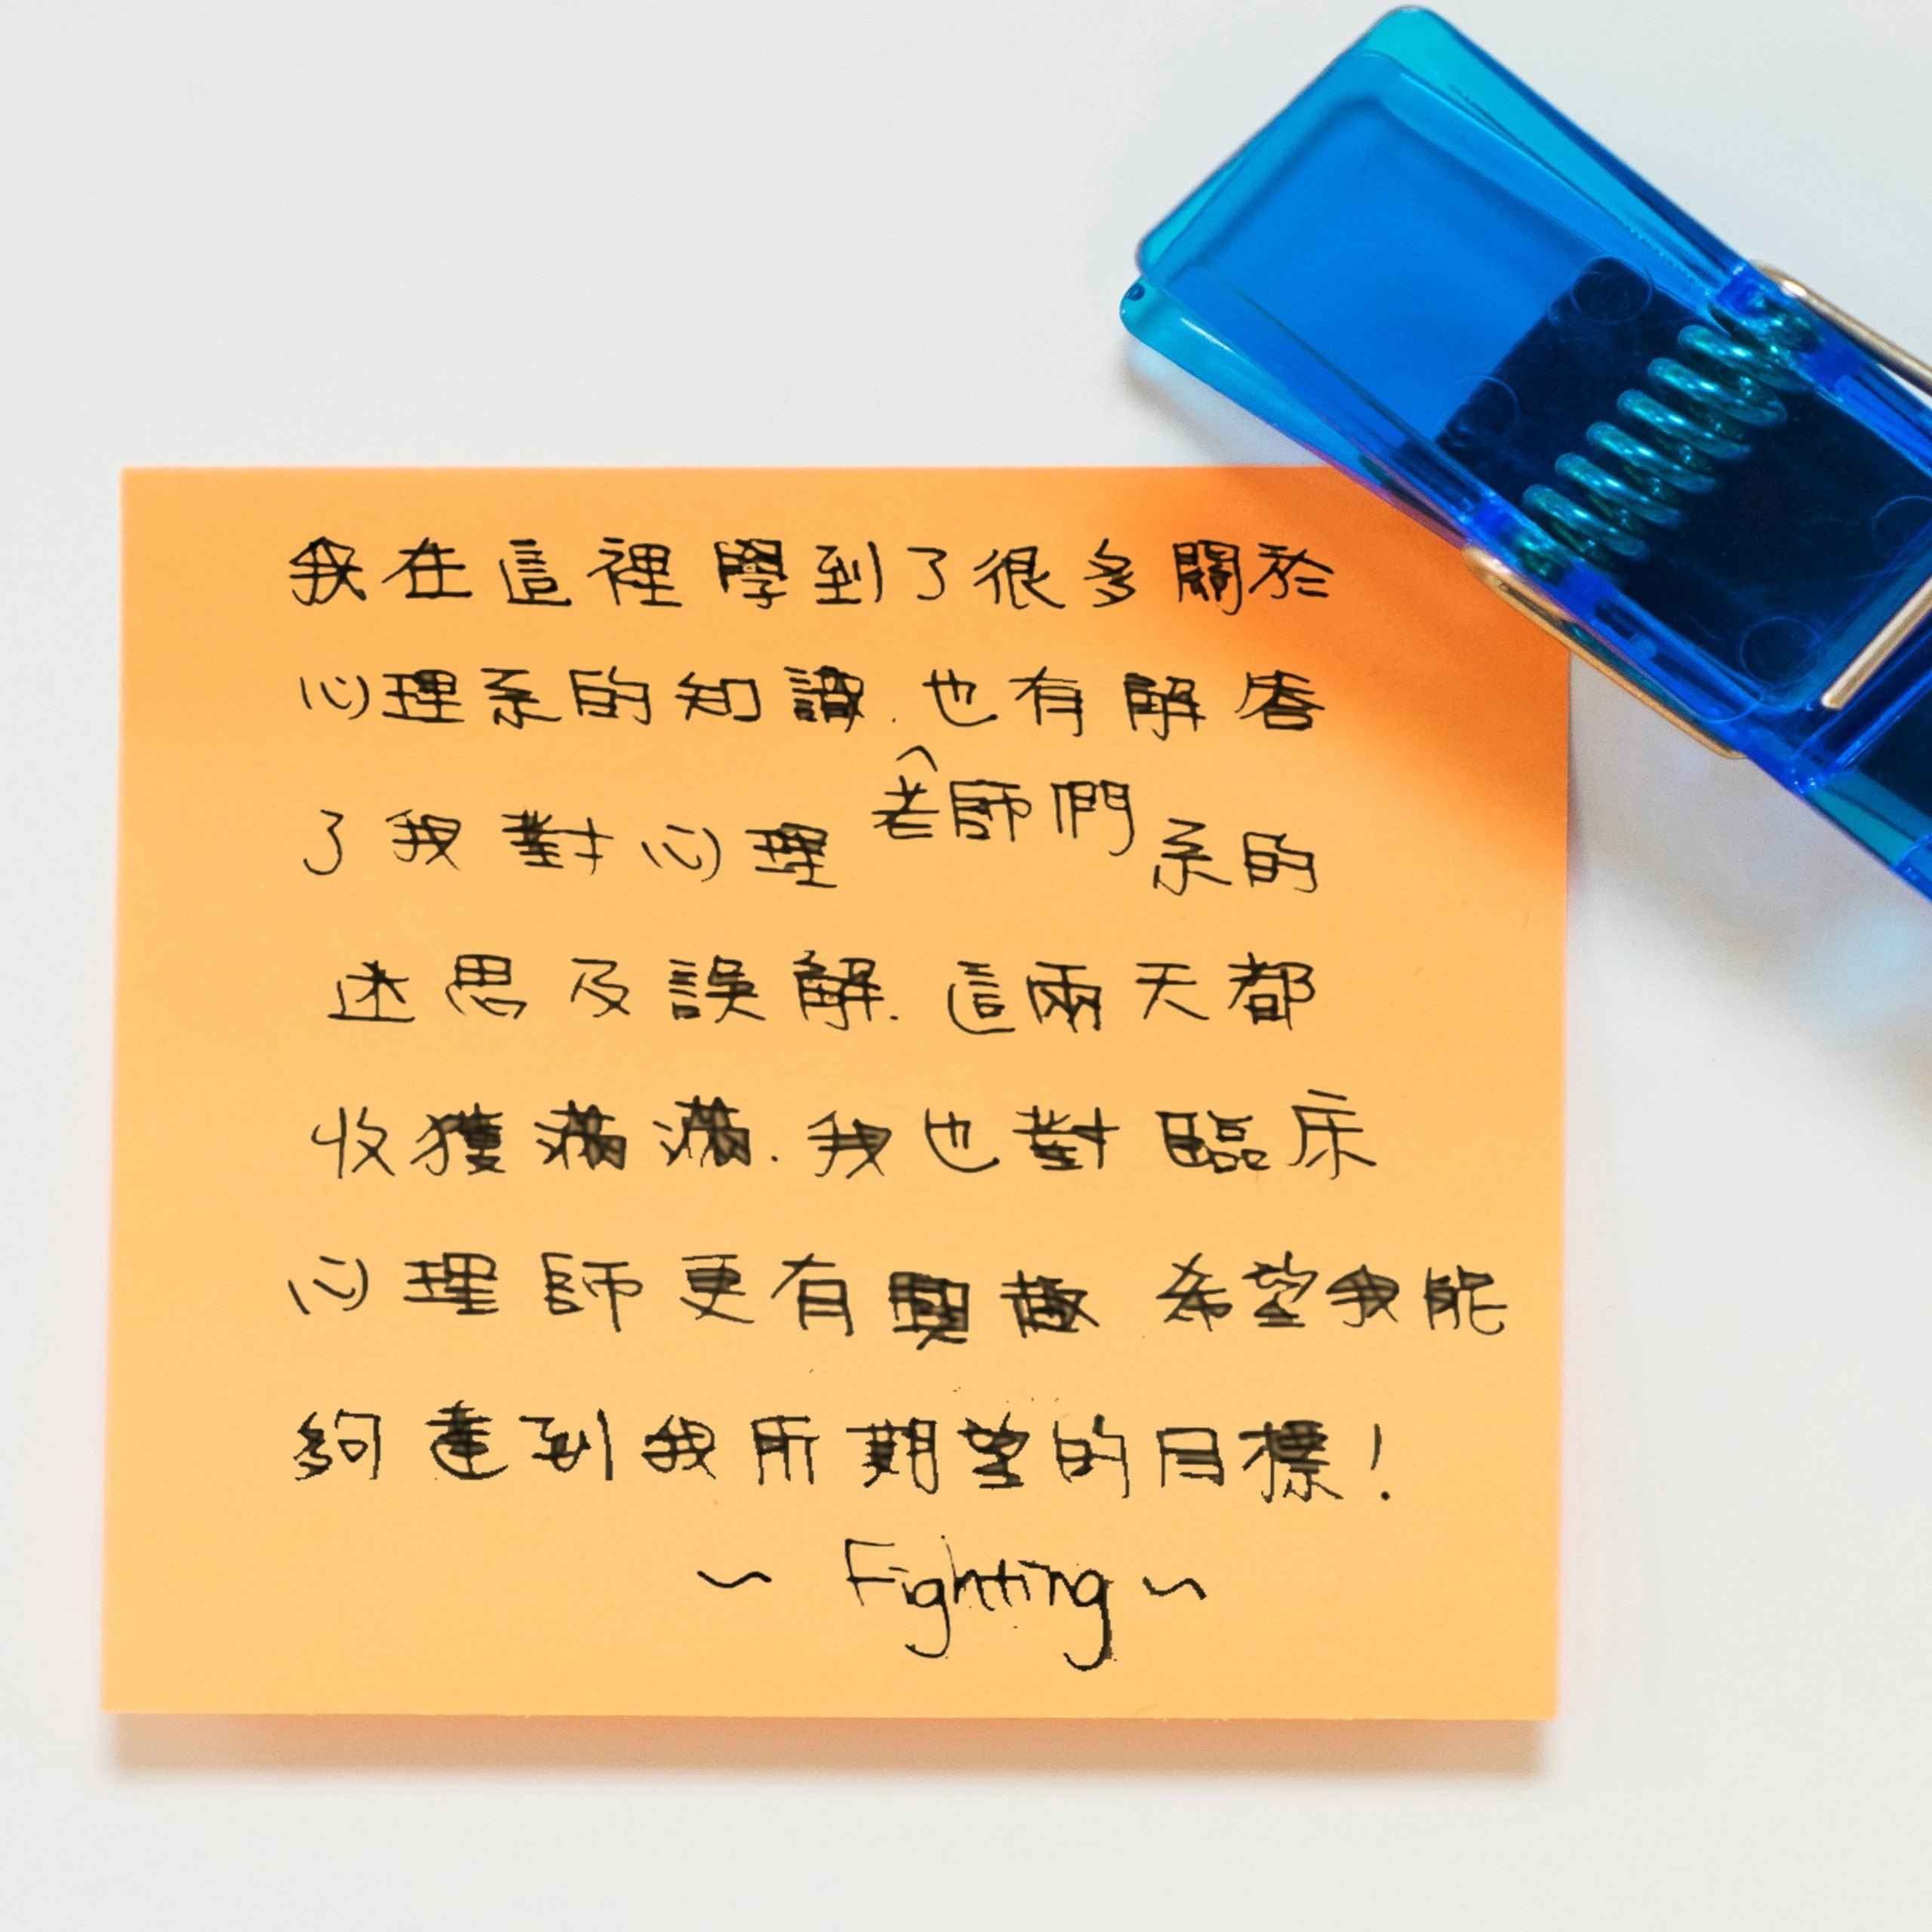 我在這裡學到了很多關於
心理系的知識.也有解答
老師們
了我對心理系的
迷思及誤解.這兩天都
收獲滿滿.我也對臨床
心理師更有興趣 希望我能
夠達到我所期望的目標!
~ Fighting ~